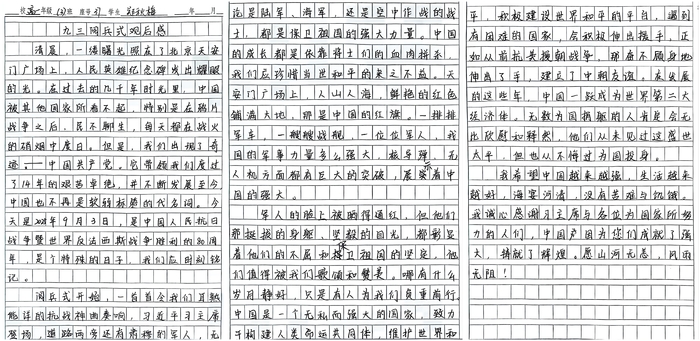 校高一年级(3)班 座号37 学生 年 月
九三阅兵式观后感
清晨，一缕曙光照在了北京天安
门广场上，人民英雄纪念碑发出耀眼
的光。在过去的几千年时光里，中国
被其他国家所看不起，特别是在鸦片
战争之后，民不聊生，每天握在战火
的硝烟中度日。但是，我们出现了奇
迹——中国共产党。它带领我们度过
了14年的艰苦卓绝，并不断发展至今
中国也不再是软弱标质的代名词。今
天是2025年9月3日，是中国人民抗日
战争暨世界反法西斯战争胜利的80周
年，是个特殊的日子，我们应时刻铭
记。
阅兵式开始，一首首令我们耳熟
能详的抗战神曲奏响，习近平习主席
登场，道路两旁还有肃穆的军人，无
论是陆军、海军，还是空中作战的战
士，都是保卫祖国的强大力量。中国
的成都是依靠将士们的血肉拼杀，
我们应珍惜当世和平的来之不益。天
安门广场上，人山人海，鲜艳的红色
铺满大地，那是中国的红旗。一排排
军车，一艘艘战舰，一位位军人，我
国的军事力量多么强大，核导弹，无
人机方面都有巨大的突破，展示着中
国的强大。
军人的脸上被晒得通红，但他们
那挺拔的身躯，坚毅的目光，都彰显
着他们的不屈和保卫祖国的坚定。他
们值得被我们歌颂和赞美。哪有什么
岁月静好，只是有人为我们负重前行。
中国是一个无私而强大的国家，致力
于构建人类命运共同体，维护世界和
平，积极建设世界和平的平台，遇到
有困难的国家，会积极伸出援手，正
如从前抗美援朝战争，那奋不顾身地
伸出了手，建立了中朝友谊。在发展
的这些年，中国一跃成为世界第二大
经济体。无数为国捐躯的人肯是会无
比欣慰和释然，他们从未见过这盛世
太平，但也从不悔过为国投身。
我希望中国越来越强，生活越来
越好，海宴河清，没有苦难与饥饿。
我诚心感谢习主席与各位为国家所努
力的人们，中国产因为你们成就了强
大，铸就了辉煌。愿山河无恙，风雨
无阻！